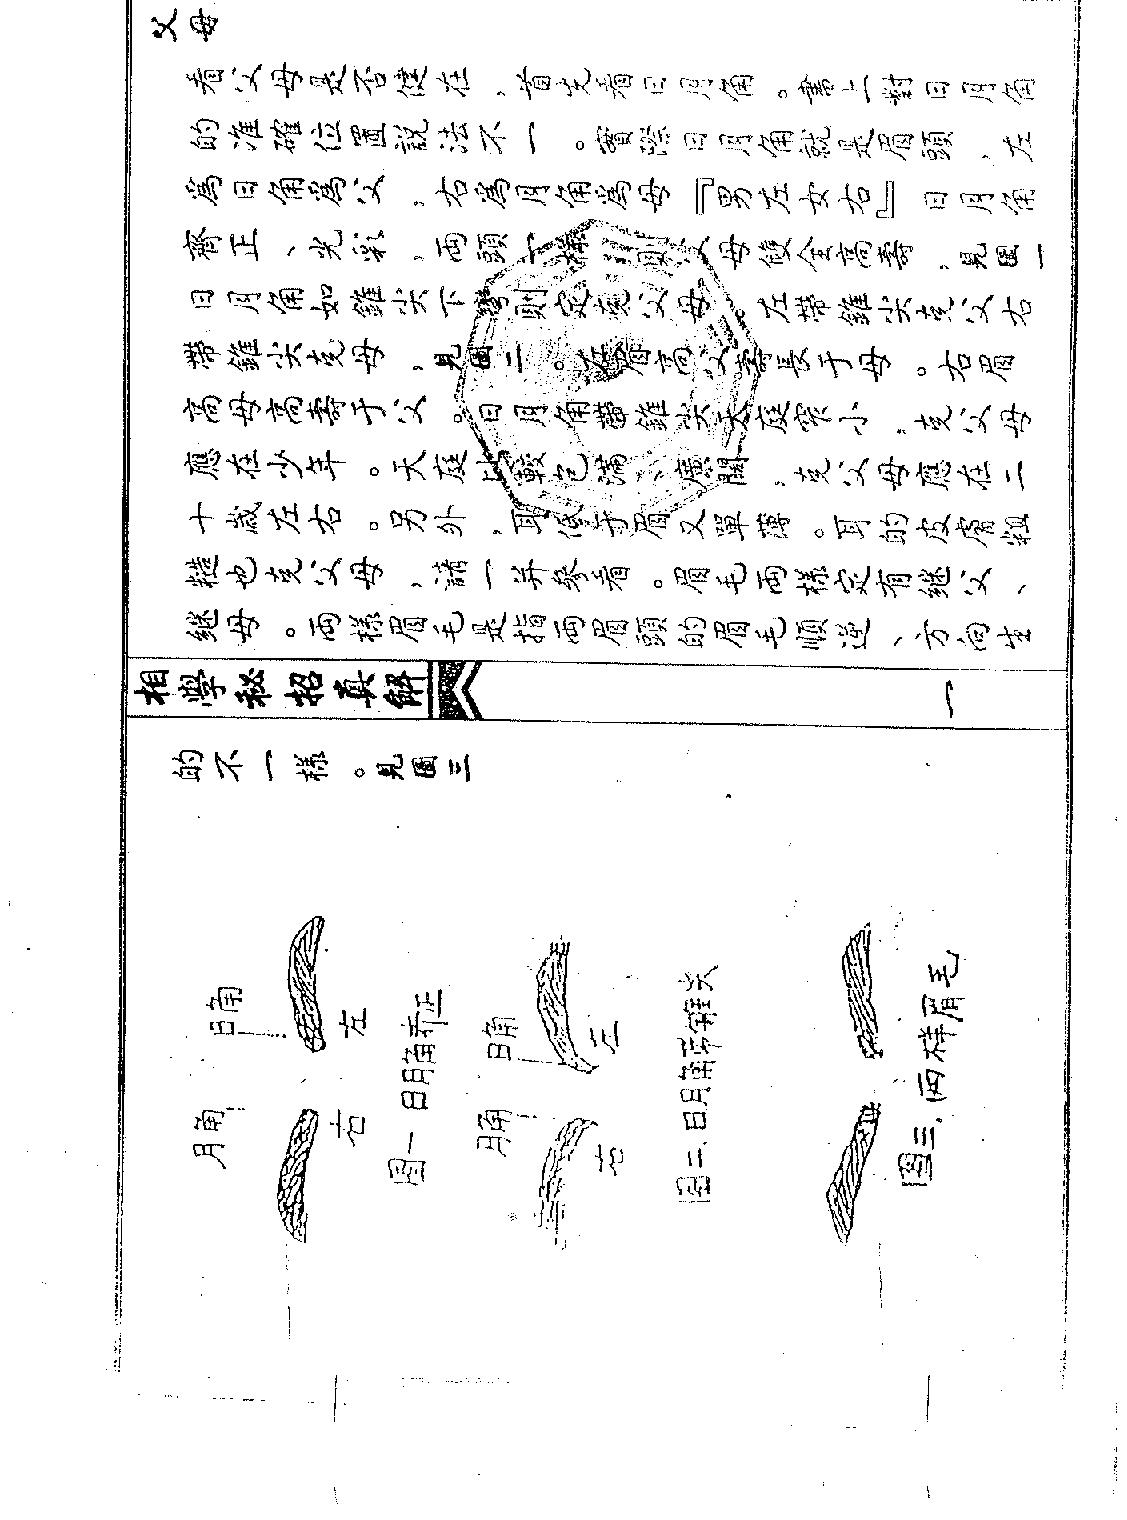 父母
看父母是否健在，首先看日月角。書上對日月角
的准確位置說法不一。實際日月角就是眉頭、左
為日角為父，右為月角為母『男左女右』日月角
齊正、光彩，両頭一樣，則父母雙全高壽，見圖一
日月角如錐尖下彎則定克父母。左带錐尖克父右
带錐尖克母，見圖二。左眉高父壽長于母。右眉
高母高壽于父。日月角带錐尖天庭窄小，克父母
應在少年。天庭比較包滿、廣闊，克父母應在二
十歲左右。另外，耳低于眉又單薄。耳的皮膚粗
糙也克父母，請一并參看。眉毛両樣定有继父、
继母。両樣眉毛是指両眉頭的眉毛順逆、方向生
相學秘招真解
一
的不一樣。見圖三
月角 日角
右 左
图一 日月角齐正
月角 日角
右 左
图二、日月角带锥尖
图三、両样眉毛